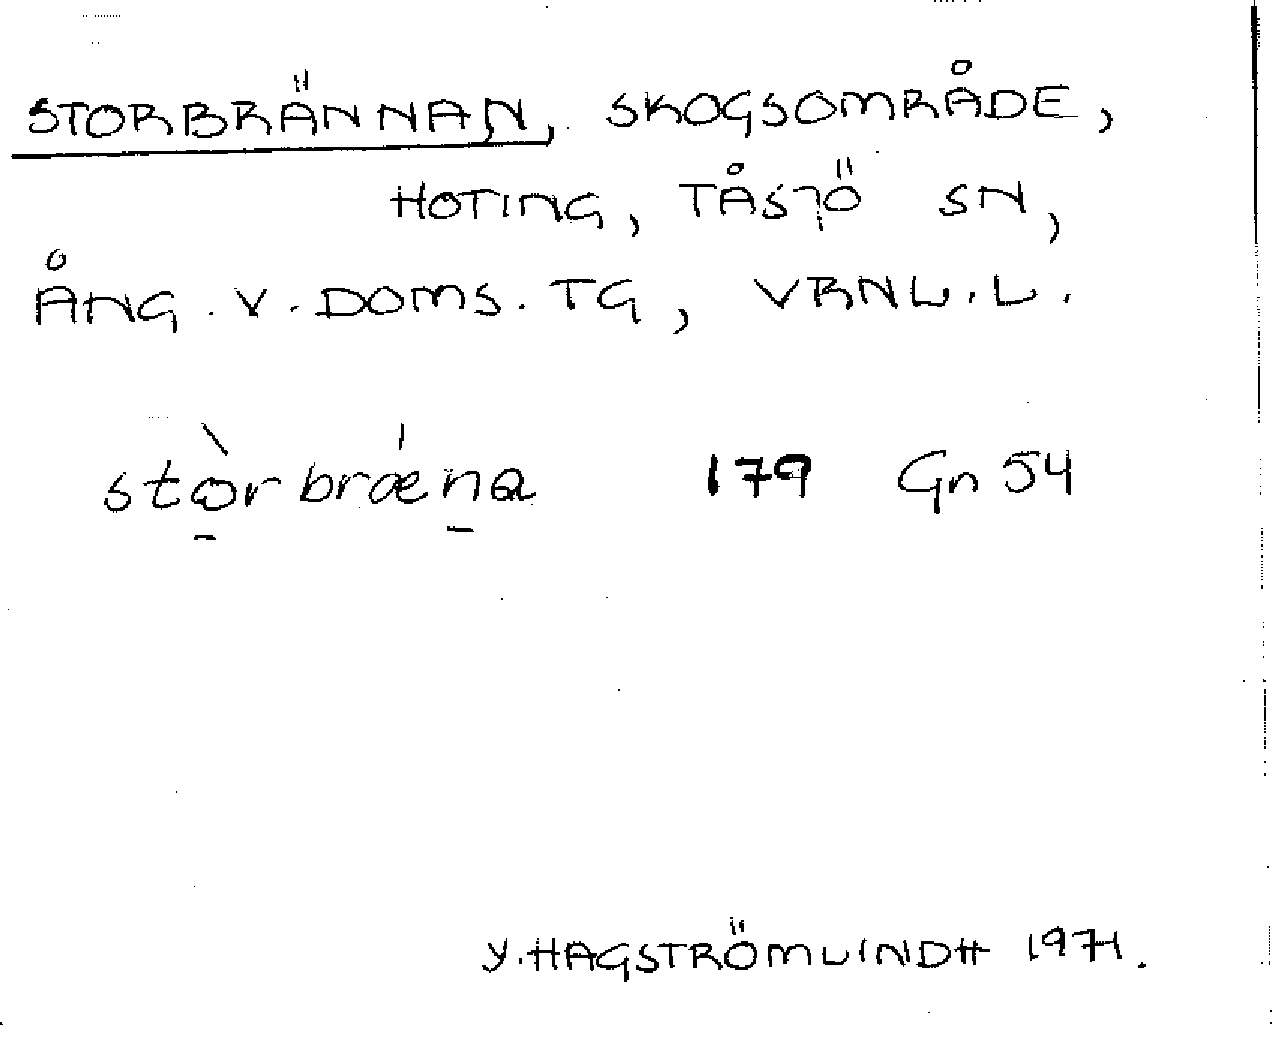 STORBRÄNNAN, SKOGSOMRÅDE,
HOTING, TÅSJÖ SN,
ÅNG. V. DOMS. TG, VRNL.L.
stòrbræna 179 Gn 54
Y. HAGSTRÖM LINDH 1971.